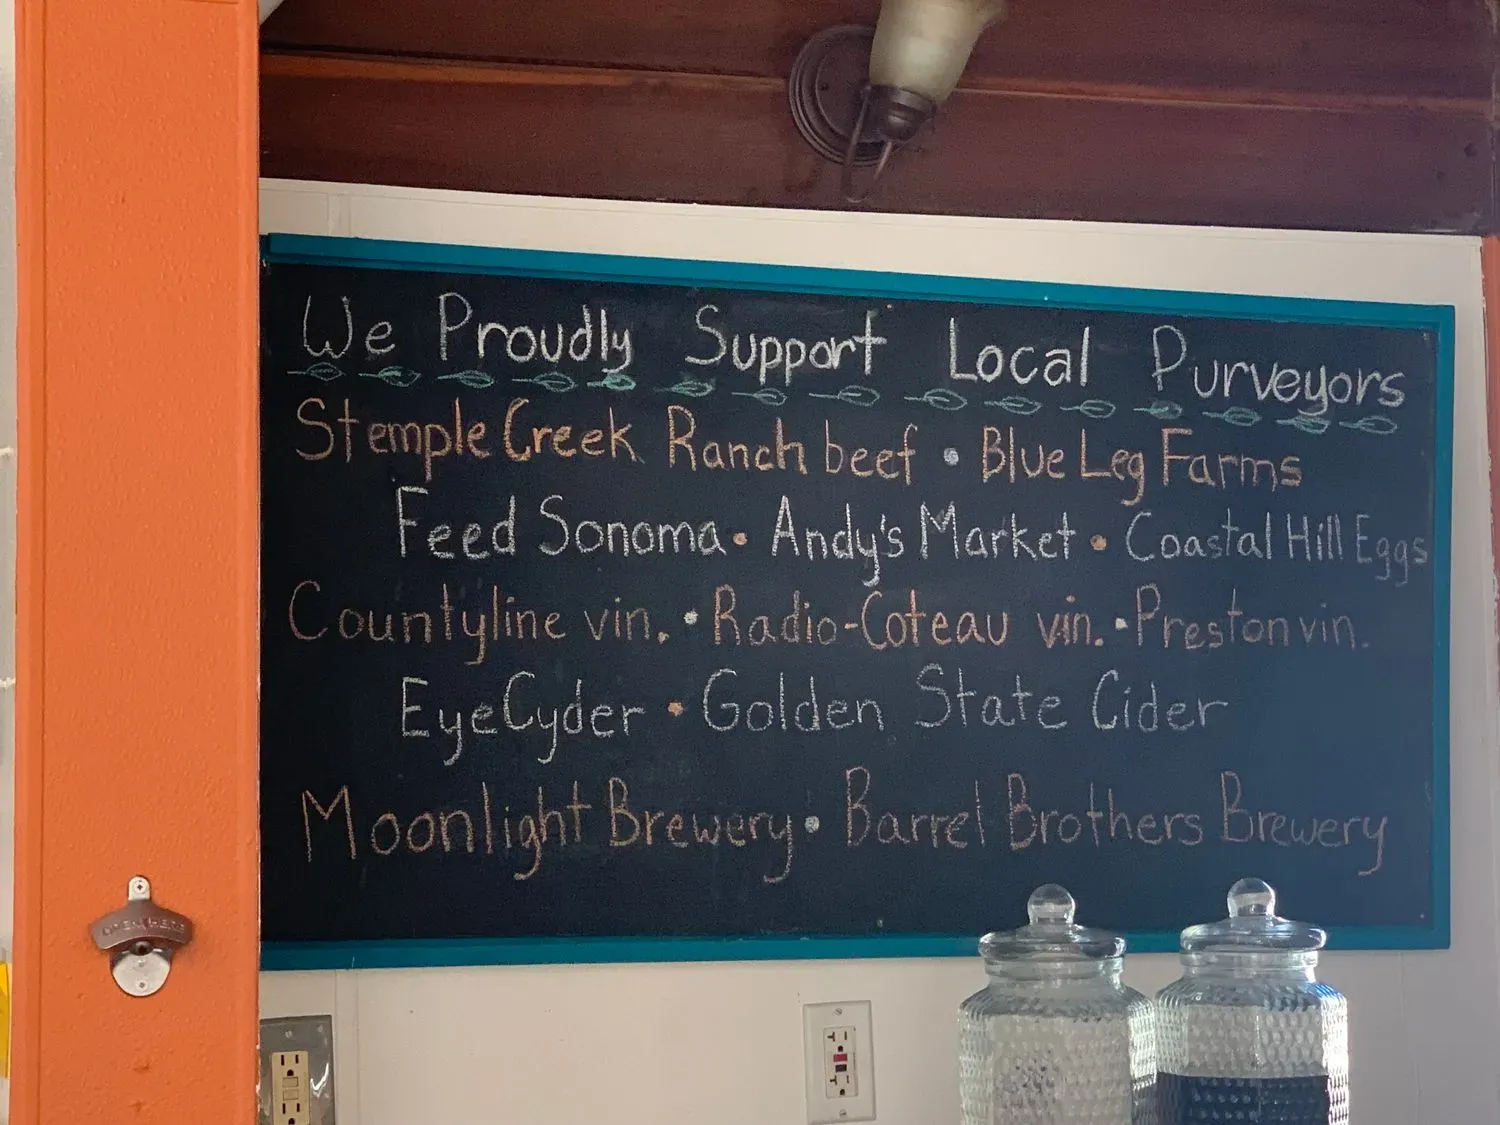 We Proudly Support Local Purveyors
Stemple Creek Ranch beef • Blue Leg Farms
Feed Sonoma • Andy's Market • Coastal Hill Eggs
Countyline vin. • Radio-Coteau vin. • Preston vin.
EyeCyder • Golden State Cider
Moonlight Brewery • Barrel Brothers Brewery
OPEN HERE